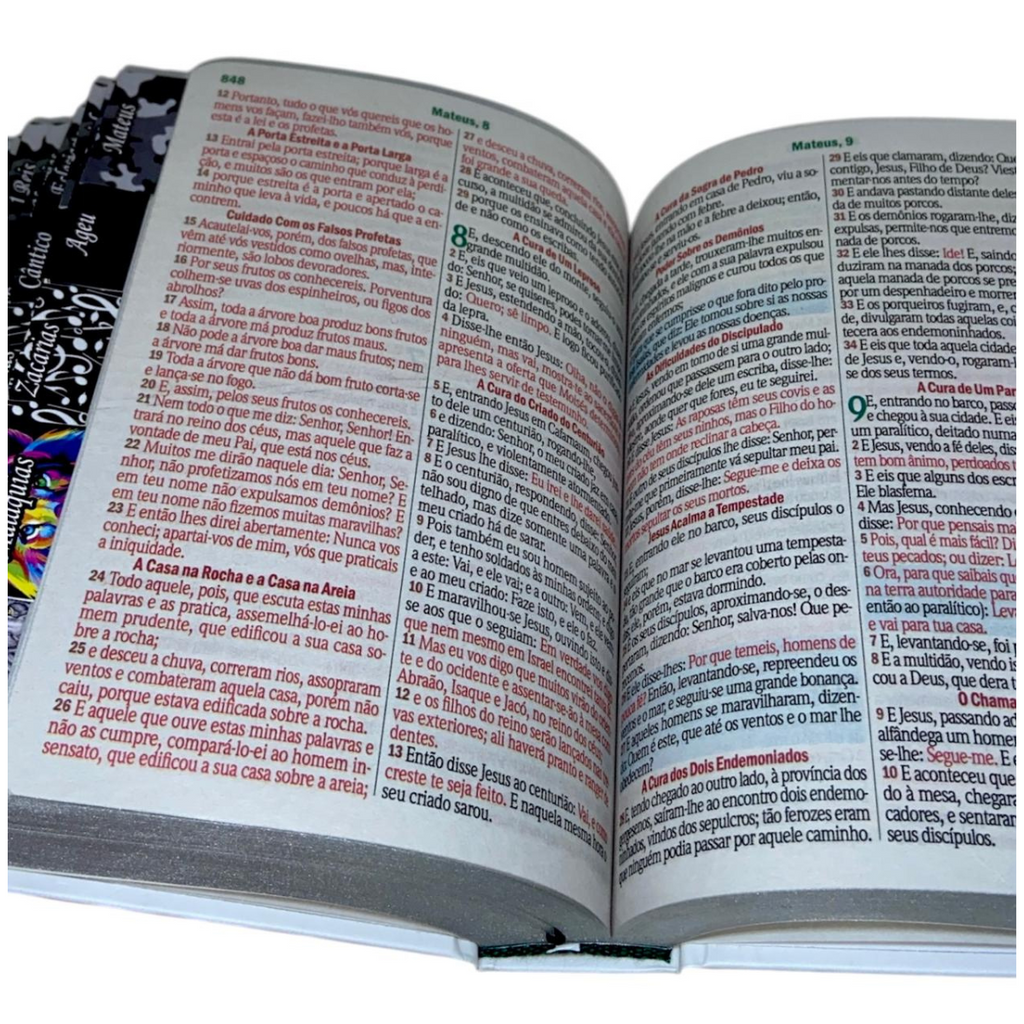 1 Reis
Cântico
Zacarias
Malaquias
Ageu
Mateus
848
Mateus, 8
12 Portanto, tudo o que vós quereis que os ho-
mens vos façam, fazei-lho também vós, porque
esta é a lei e os profetas.
A Porta Estreita e a Porta Larga
13 Entrai pela porta estreita; porque larga é a
porta e espaçoso o caminho que conduz à perdi-
ção, e muitos são os que entram por ela;
14 porque estreita é a porta e apertado o ca-
minho que leva à vida, e poucos há que a en-
contrem.
Cuidado Com os Falsos Profetas
15 Acautelai-vos, porém, dos falsos profetas, que
vêm até vós vestidos como ovelhas, mas, inte-
riormente, são lobos devoradores.
16 Por seus frutos os conhecereis. Porventura
colhem-se uvas dos espinheiros, ou figos dos
abrolhos?
17 Assim, toda a árvore boa produz bons frutos
e toda a árvore má produz frutos maus.
18 Não pode a árvore boa dar maus frutos; nem
a árvore má dar frutos bons.
19 Toda a árvore que não dá bom fruto corta-se
e lança-se no fogo.
20 E, assim, pelos seus frutos os conhecereis.
21 Nem todo o que me diz: Senhor, Senhor! En-
trará no reino dos céus, mas aquele que faz a
vontade de meu Pai, que está nos céus.
22 Muitos me dirão naquele dia: Senhor, Se-
nhor, não profetizamos nós em teu nome? E
em teu nome não expulsamos demônios? E
em teu nome não fizemos muitas maravilhas?
23 E então lhes direi abertamente: Nunca vos
conheci; apartai-vos de mim, vós que praticais
a iniquidade.
A Casa na Rocha e a Casa na Areia
24 Todo aquele, pois, que escuta estas minhas
palavras e as pratica, assemelhá-lo-ei ao ho-
mem prudente, que edificou a sua casa so-
bre a rocha;
25 e desceu a chuva, correram rios, assopraram
ventos e combateram aquela casa, porém não
caiu, porque estava edificada sobre a rocha.
26 E aquele que ouve estas minhas palavras e
não as cumpre, compará-lo-ei ao homem in-
sensato, que edificou a sua casa sobre a areia;
27 e desceu a chuva, correram
ventos, combateram aquela casa,
foi grande a sua queda.
28 E aconteceu que, concluindo
curso, a multidão se admirou da
29 porque os ensinava como tendo
de e não como os escribas.
A Cura de um Leproso
8 E, descendo ele do monte, seguiu-o
grande multidão.
2 E, eis que veio um leproso e o adorou,
do: Senhor, se quiseres, podes
3 E Jesus, estendendo a mão, tocou-o,
do: Quero; sê limpo. E logo ficou
da lepra.
4 Disse-lhe então Jesus: Olha, não
ninguém, mas vai, mostra-te ao
apresenta a oferta que Moisés
para lhes servir de testemunho.
A Cura do Criado do Centurião
5 E, entrando Jesus em Cafarnaum, chegou
to dele um centurião, rogando-lhe
6 e dizendo: Senhor, o meu criado jaz em
paralítico, e violentamente atormentado.
7 E Jesus lhe disse: Eu irei e lhe darei saúde.
8 E o centurião, respondendo, disse:
não sou digno de que entres debaixo do meu
telhado, mas dize somente uma palavra
meu criado há de sarar.
9 Pois também eu sou homem sujeito ao
der, e tenho soldados às minhas ordens; e
a este: Vai, e ele vai; e a outro: Vem, e ele vem;
e ao meu criado: Faze isto, e ele o faz.
10 E maravilhou-se Jesus, ouvindo isto, e
se aos que o seguiam: Em verdade vos
que nem mesmo em Israel encontrei
11 Mas eu vos digo que muitos virão do orien-
te e do ocidente e assentar-se-ão à mesa com
Abraão, Isaque e Jacó, no reino dos céus;
12 e os filhos do reino serão lançados nas tre-
vas exteriores; ali haverá pranto e ranger de
dentes.
13 Então disse Jesus ao centurião: Vai, e como
creste te seja feito. E naquela mesma hora o
seu criado sarou.
Mateus, 9
A Cura da Sogra de Pedro
entrando em casa de Pedro, viu a so-
com febre.
na mão, e a febre a deixou; então,
e serviu-os.
Poder Sobre os Demônios
a tarde, trouxeram-lhe muitos en-
e ele com a sua palavra expulsou
espíritos malignos e curou todos os que
se cumprisse o que fora dito pelo pro-
que diz: Ele tomou sobre si as nossas
e levou as nossas doenças.
As Dificuldades do Discipulado
vendo em torno de si uma grande mul-
ordenou que passassem para o outro lado;
aproximando-se dele um escriba, disse-lhe:
aonde quer que fores, eu te seguirei.
disse Jesus: As raposas têm seus covis e as
do céu têm seus ninhos, mas o Filho do ho-
não tem onde reclinar a cabeça.
de seus discípulos lhe disse: Senhor, per-
que primeiramente vá sepultar meu pai.
Jesus, porém, disse-lhe: Segue-me e deixa os
sepultar os seus mortos.
Jesus Acalma a Tempestade
E, entrando ele no barco, seus discípulos o
eis que no mar se levantou uma tempesta-
grande que o barco era coberto pelas on-
ele, porém, estava dormindo.
E os seus discípulos, aproximando-se, o des-
dizendo: Senhor, salva-nos! Que pe-
E ele disse-lhes: Por que temeis, homens de
pouca fé? Então, levantando-se, repreendeu os
ventos e o mar, e seguiu-se uma grande bonança.
E aqueles homens se maravilharam, dizen-
do: Quem é este, que até os ventos e o mar lhe
obedecem?
A Cura dos Dois Endemoniados
E, tendo chegado ao outro lado, à província dos
gergesenos, saíram-lhe ao encontro dois endemo-
ninhados, vindos dos sepulcros; tão ferozes eram
que ninguém podia passar por aquele caminho.
29 E eis que clamaram, dizendo: Que
contigo, Jesus, Filho de Deus? Vieste
mentar-nos antes do tempo?
30 E andava pastando distante deles
da de muitos porcos.
31 E os demônios rogaram-lhe, diz
expulsas, permite-nos que entremos
nada de porcos.
32 E ele lhes disse: Ide! E, saindo
duziram na manada dos porcos;
aquela manada de porcos se pre
por um despenhadeiro e morre
33 E os porqueiros fugiram, e, c
de, divulgaram todas aquelas coi
tecera aos endemoninhados.
34 E eis que toda aquela cidade
de Jesus, e, vendo-o, rogaram-l
se dos seus termos.
A Cura de Um Par
9 E, entrando no barco, pass
e chegou à sua cidade. E eis
um paralítico, deitado numa
2 E Jesus, vendo a fé deles, diss
tem bom ânimo, perdoados t
3 E eis que alguns dos escri
Ele blasfema.
4 Mas Jesus, conhecendo
disse: Por que pensais ma
5 Pois, qual é mais fácil? Di
teus pecados; ou dizer: L
6 Ora, para que saibais qu
na terra autoridade para
então ao paralítico): Leva
e vai para tua casa.
7 E, levantando-se, foi p
8 E a multidão, vendo is
cou a Deus, que dera t
O Chama
9 E Jesus, passando ad
alfândega um homem
se-lhe: Segue-me. E e
10 E aconteceu que
do à mesa, chegara
cadores, e sentaram
seus discípulos.